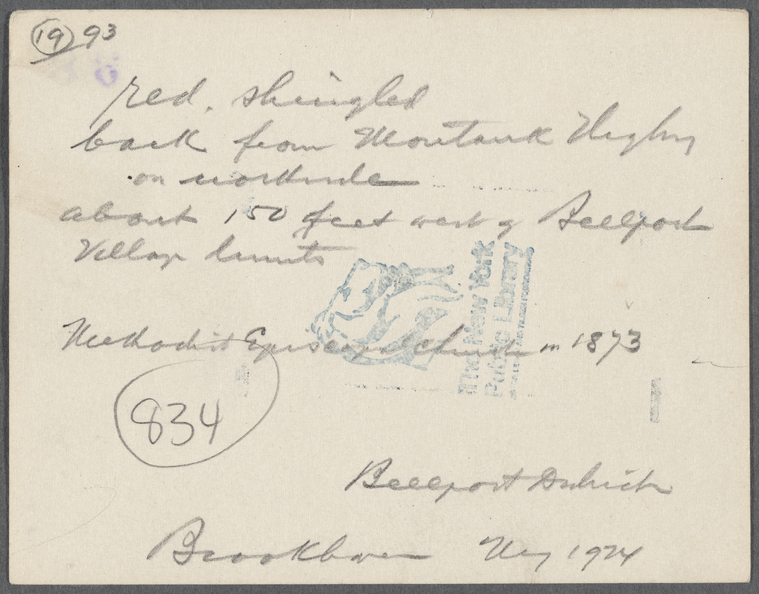 19 93
red. shingled
back from Montauk Highy
on northside
about 150 feet west of Bellport
Village limits
Methodist Episcopal Church in 1873
834
Bellport District
Brookhaven 1924
The New York
Public Library